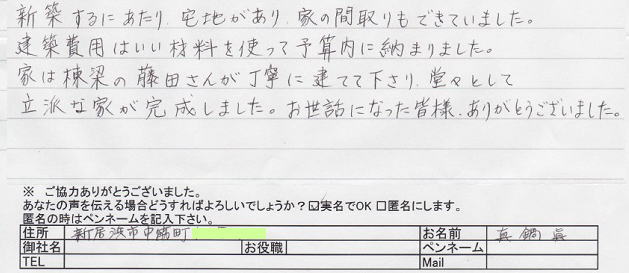 新築するにあたり、宅地があり、家の間取りもできていました。
建築費用はいい材料を使って予算内に納まりました。
家は棟梁の藤田さんが丁寧に建てて下さり、堂々として
立派な家が完成しました。お世話になった皆様、ありがとうございました。
※ ご協力ありがとうございました。
あなたの声を伝える場合どうすればよろしいでしょうか？☑実名でOK □匿名にします。
匿名の時はペンネームを記入下さい。
住所 新居浜市中萩町 お名前 真鍋 眞
御社名 お役職 ペンネーム
TEL Mail